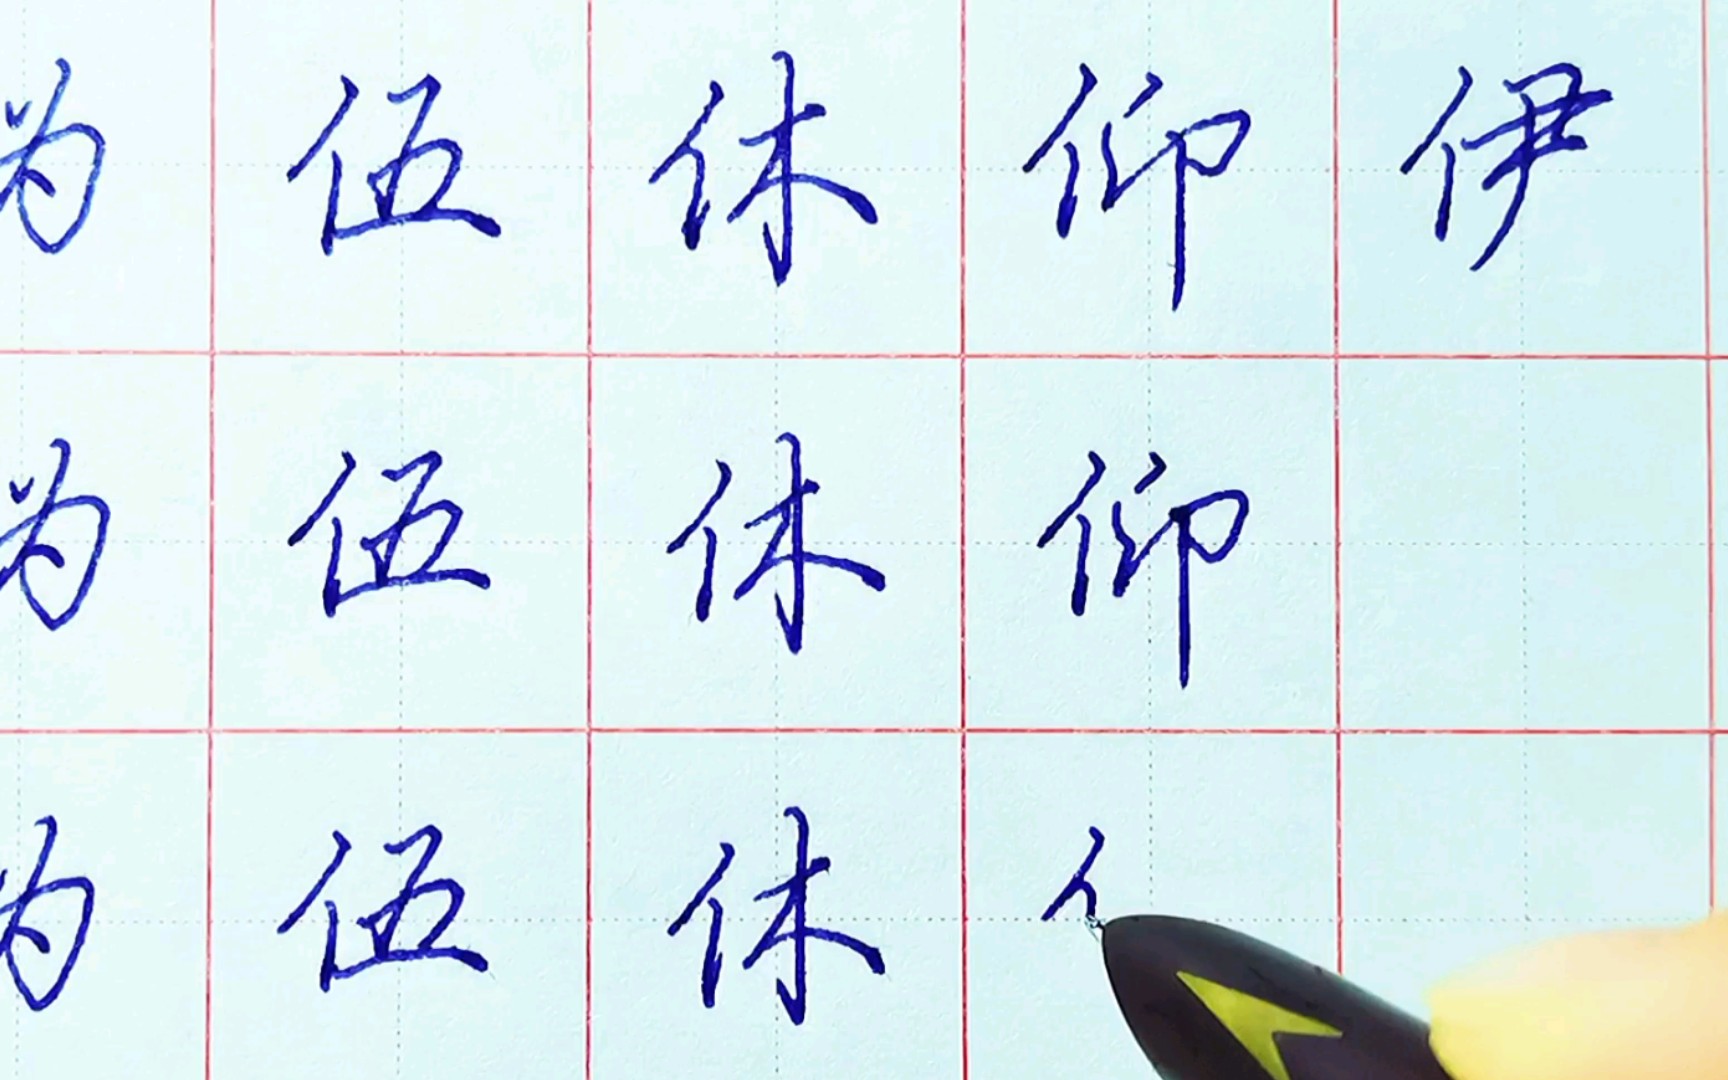 为伍休仰伊
为伍休仰
为伍休亻